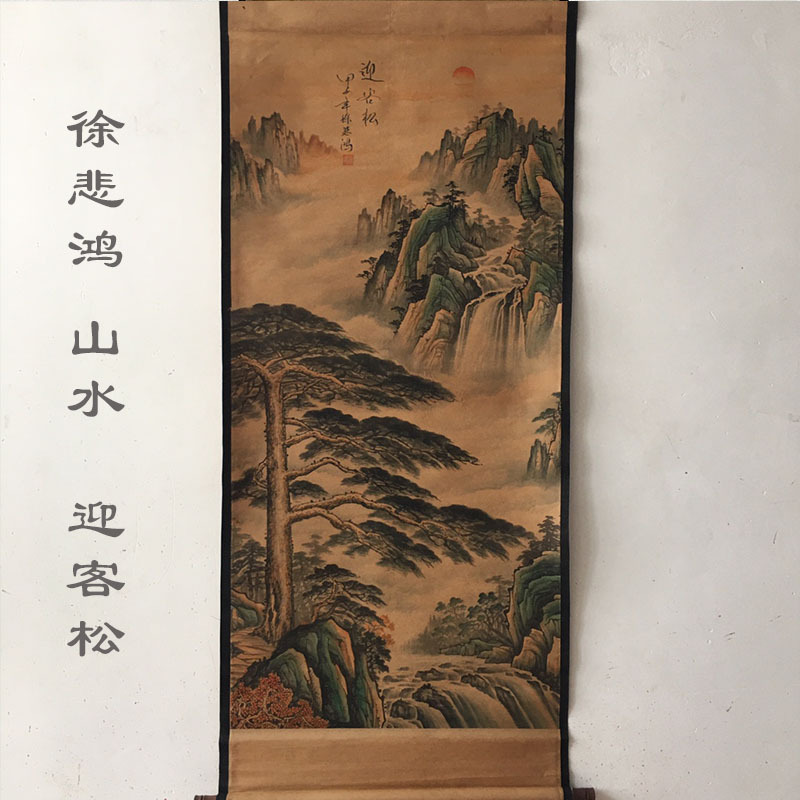 徐悲鸿 山水 迎客松
迎客松
甲午年徐悲鴻